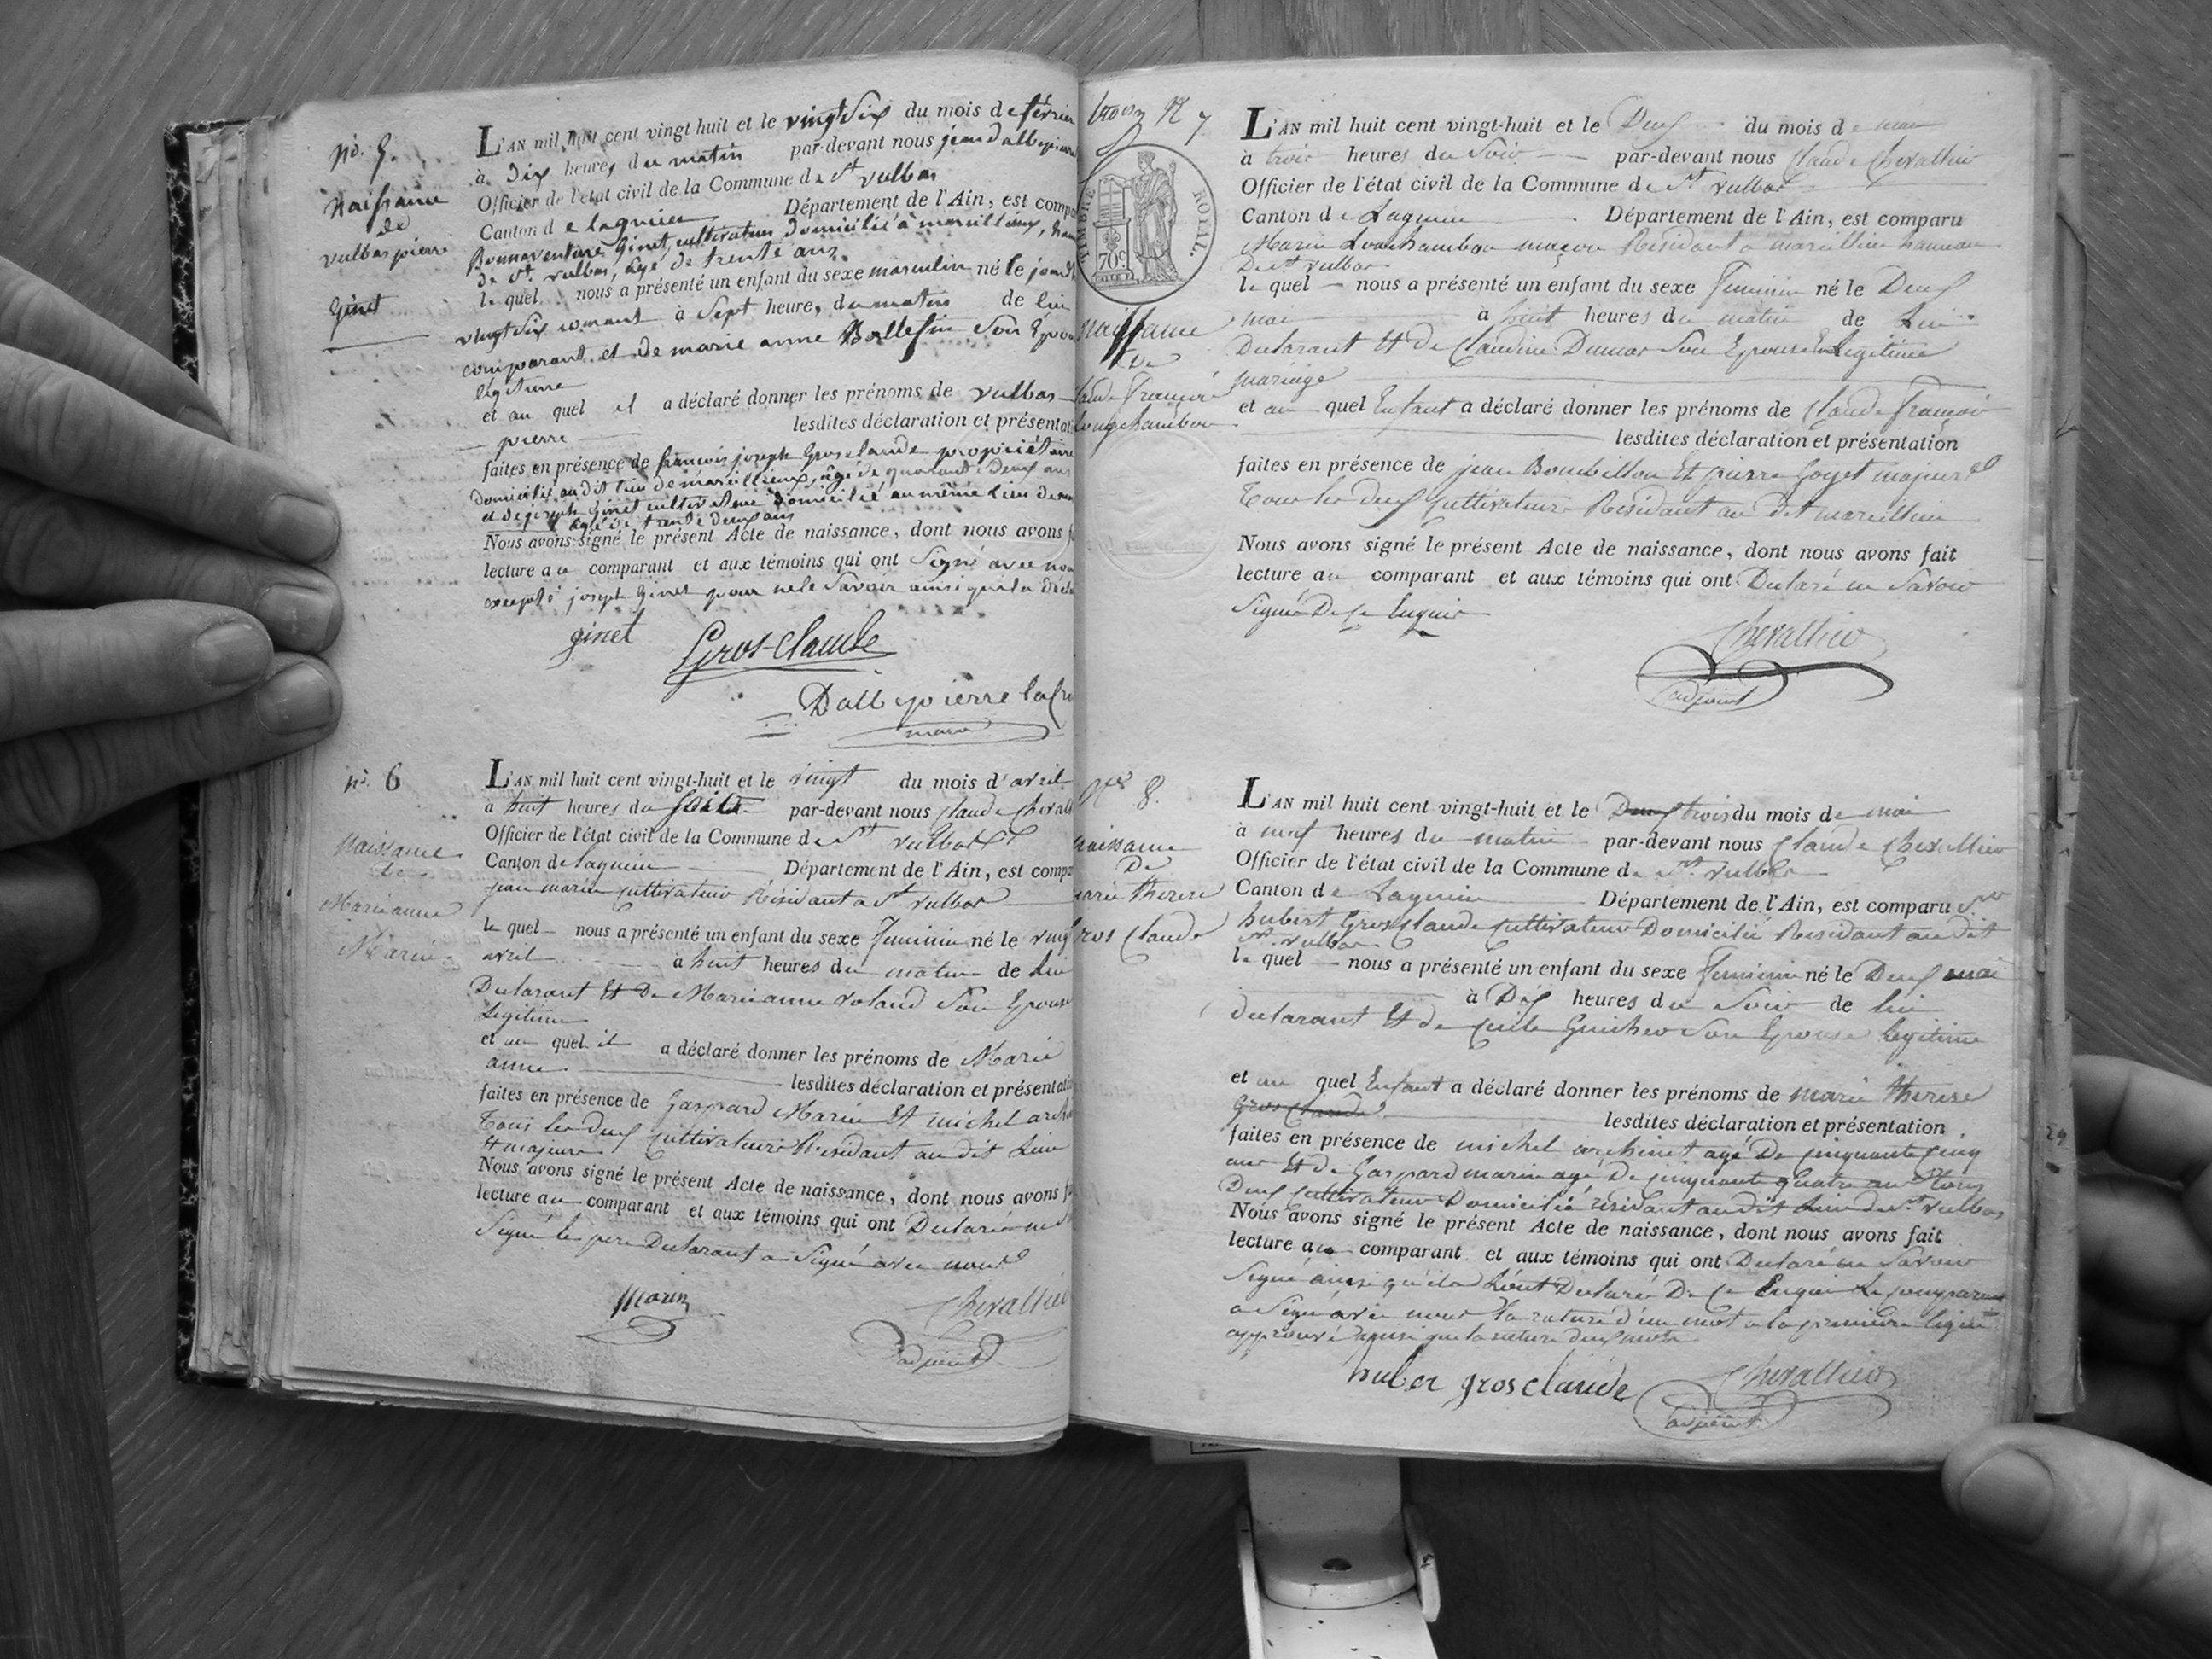 No. 5.
Naissance
de
vulbas pierre
Ginet
L'AN mil huit cent vingt-huit et le vingt Six du mois de fevrier
à Dix heures du matin par-devant nous jean dallepierre
Officier de l'état civil de la Commune de St vulbas
Canton de lagnieu Département de l'Ain, est compa
Bonnaventure Ginet, cultivateur domicilié à marcillieux, ham
de St. vulbas, âgé de trente ans.
le quel nous a présenté un enfant du sexe masculin né le jourd'h
vingt Six courant à Sept heures du matin de lui
comparant et de marie anne Ballefin Son Epou
légitime
et au quel il a déclaré donner les prénoms de vulbas
pierre lesdites déclaration et présentati
faites en présence de francois joseph Grosclaude propriétaire
domicilié au dit lieu de marcillieux, âgé de quarante deux ans
et de joseph Ginet cultivateur domicilié au même lieu de mar
âgé de trente deux ans
Nous avons signé le présent Acte de naissance, dont nous avons f
lecture au comparant et aux témoins qui ont Signé avec nou
excepté joseph Ginet pour ne le Savoir ainsi qu'il a décla
ginet Gros-Claude
Dallepierre
maire
no. 6
Naissance
de
Marie anne
Marin
L'AN mil huit cent vingt-huit et le vingt du mois d'avril
à huit heures du par-devant nous Claude Cheval
Officier de l'état civil de la Commune de St vulbas
Canton de lagnieu Département de l'Ain, est compa
jean marin cultivateur Résidant a St vulbas
le quel nous a présenté un enfant du sexe feminin né le ving
avril à huit heures du matin de lui
Declarant Et De Marie anne roland Son Epouse
Legitime
et au quel il a déclaré donner les prénoms de Marie
anne lesdites déclaration et présentati
faites en présence de Gaspard Marin Et michel arch
Tous les deux cultivateurs Residant au dit Lieu
Et majeurs
Nous avons signé le présent Acte de naissance, dont nous avons f
lecture au comparant et aux témoins qui ont Declaré ne
Signé le pere Declarant a Signé avec nous
Marin Chevallier
adjoint
No 7
TIMBRE ROYAL.
70c.
Naissance
De
Claude François
Longchambon
L'AN mil huit cent vingt-huit et le Deux du mois de mai
à trois heures du Soir par-devant nous Claude Chevallier
Officier de l'état civil de la Commune de St vulbas
Canton de Lagnieu Département de l'Ain, est comparu
Marin Lonchambon maçon Résidant a marcillieu hameau
De St vulbas
le quel nous a présenté un enfant du sexe feminin né le Deux
mai à huit heures du matin de Lui
Declarant Et De Claudine Dumas Son Epouse En Legitime
mariage
et au quel Enfant a déclaré donner les prénoms de Claude françois
lesdites déclaration et présentation
faites en présence de jean Bourbillon Et pierre Goyet majeurs
Tous les deux Cultivateurs Residant au dit marcillieu
Nous avons signé le présent Acte de naissance, dont nous avons fait
lecture au comparant et aux témoins qui ont Declaré ne Savoir
Signé De Ce Enquis
Chevallier
adjoint
No 8.
Naissance
De
marie therese
Gros Claude
L'AN mil huit cent vingt-huit et le Deux trois du mois de mai
à neuf heures du matin par-devant nous Claude Chevallier
Officier de l'état civil de la Commune de St. vulbas
Canton de Lagnieu Département de l'Ain, est comparu Sr
hubert Gros Claude Cultivateur Domicilié Residant au dit
St. vulbas
le quel nous a présenté un enfant du sexe feminin né le Deux mai
à Dix heures du Soir de lui
declarant Et de Cecile Guicher Son Epouse legitime
et au quel Enfant a déclaré donner les prénoms de marie therese
Gros Claude lesdites déclaration et présentation
faites en présence de michel archinet agé De cinquante Cinq
ans Et de Gaspard marin agé De cinquante quatre ans tous
Deux Cultivateurs Domicilié résidant au dit Lieu de St. vulbas
Nous avons signé le présent Acte de naissance, dont nous avons fait
lecture au comparant et aux témoins qui ont Declaré ne Savoir
Signé ainsi qu'il Lont Declaré De Ce Enquis Le Comparant
a Signé avec nous la rature d'un mot a la premiere ligne
approuvé ainsi que la rature deux mots
huber gros claude Chevallier
adjoint
29